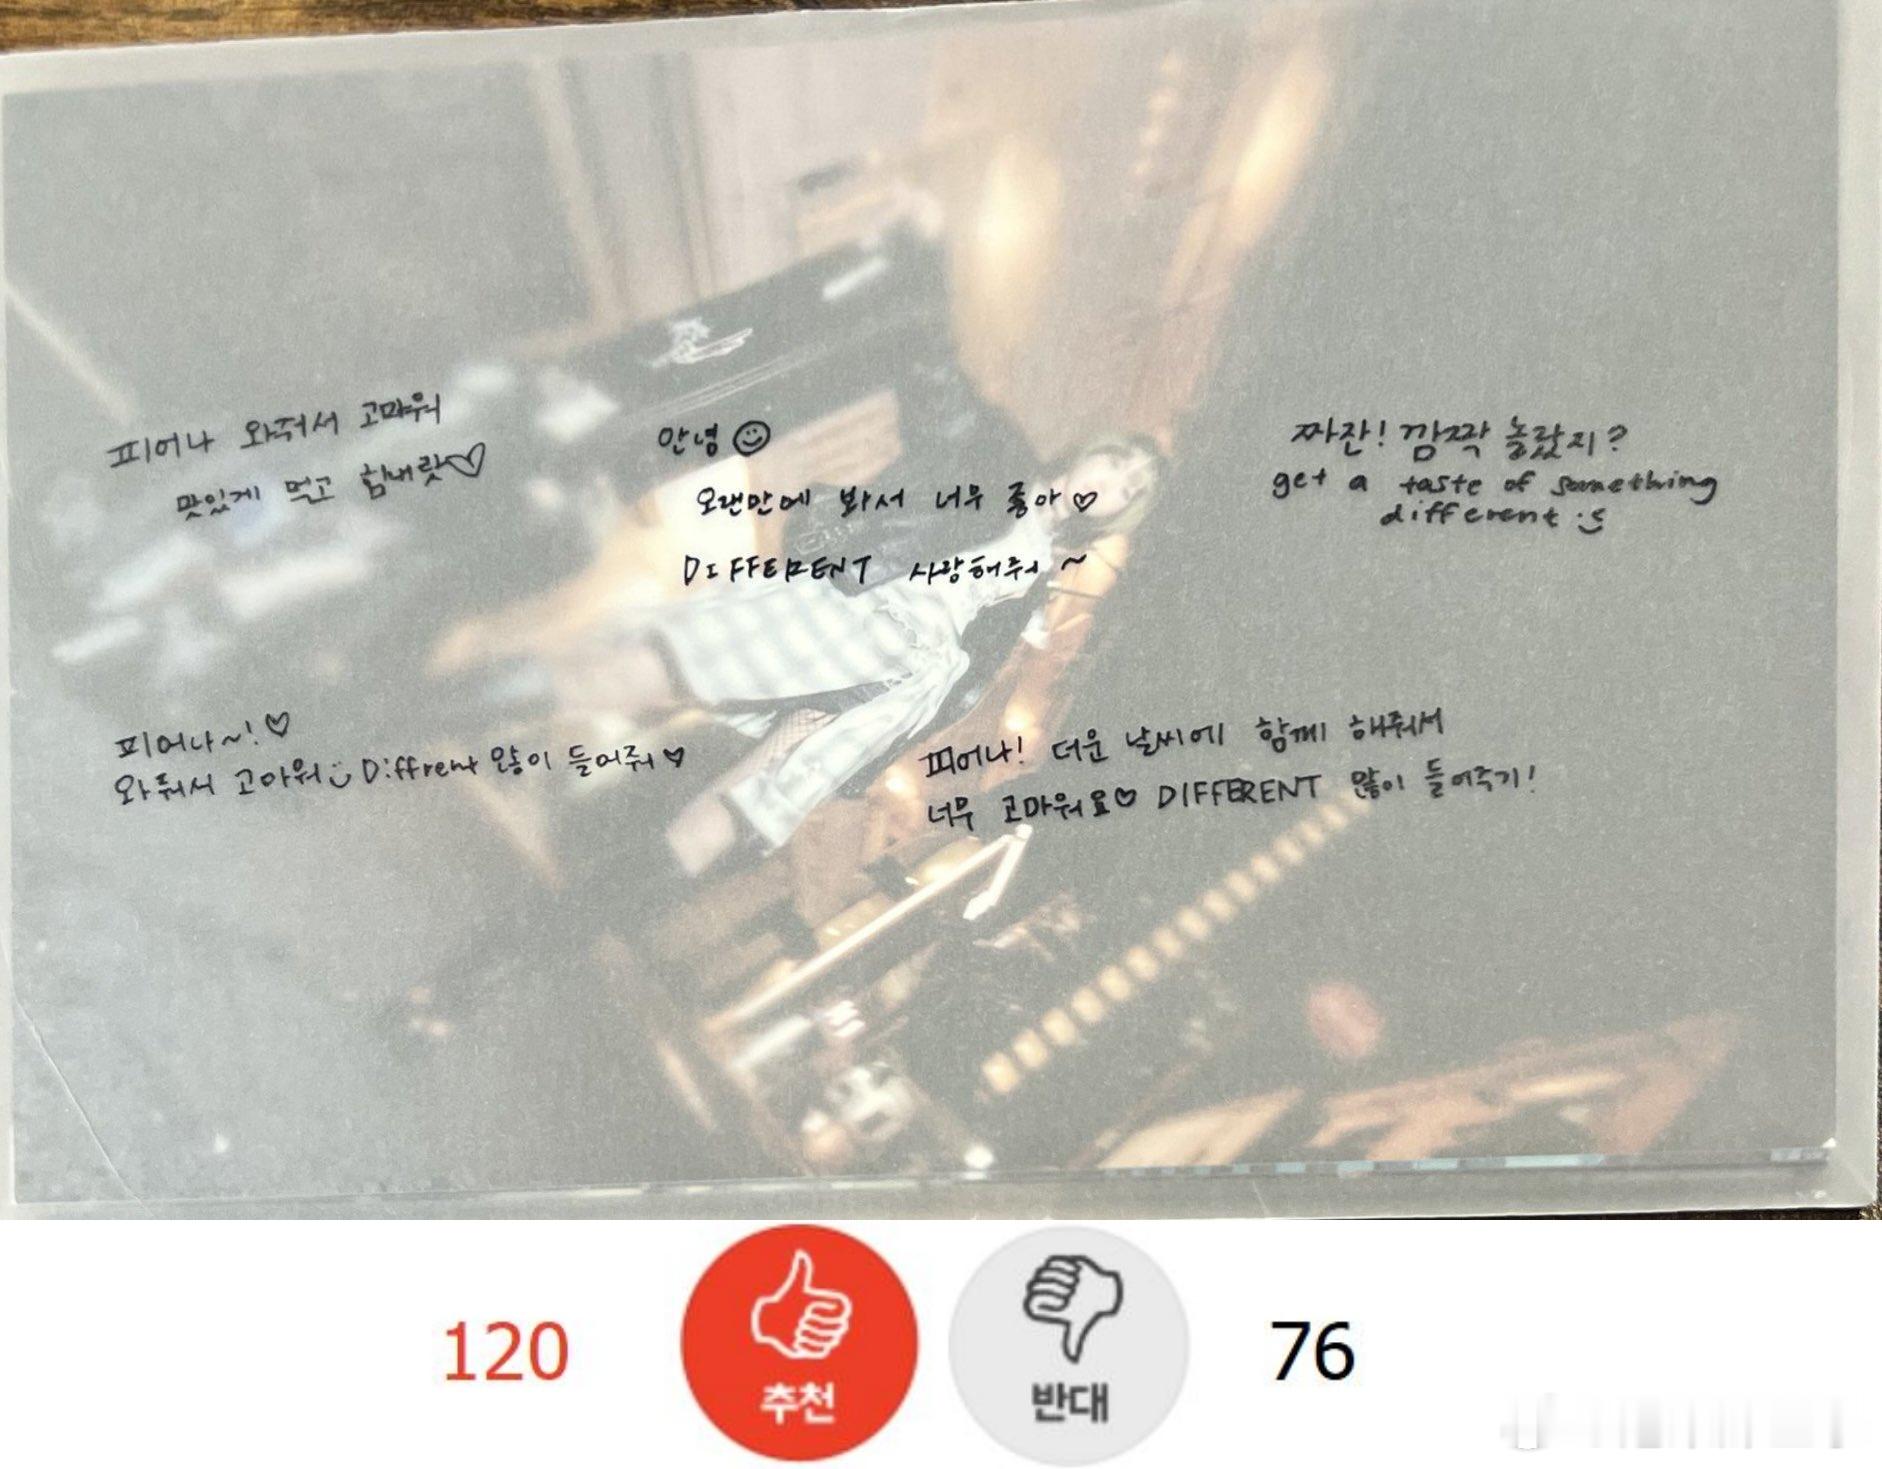 피어나 와줘서 고마워
맛있게 먹고 힘내랏♡
안녕☺
오랜만에 봐서 너무 좋아♡
DIFFERENT 사랑해줘~
짜잔! 깜짝 놀랐지?
get a taste of something
different :)
피어나~!♡
와줘서 고마워 Diffrent 많이 들어줘♥
피어나! 더운 날씨에 함께 해줘서
너무 고마워요♡ DIFFERENT 많이 들어주기!
120
추천
반대
76